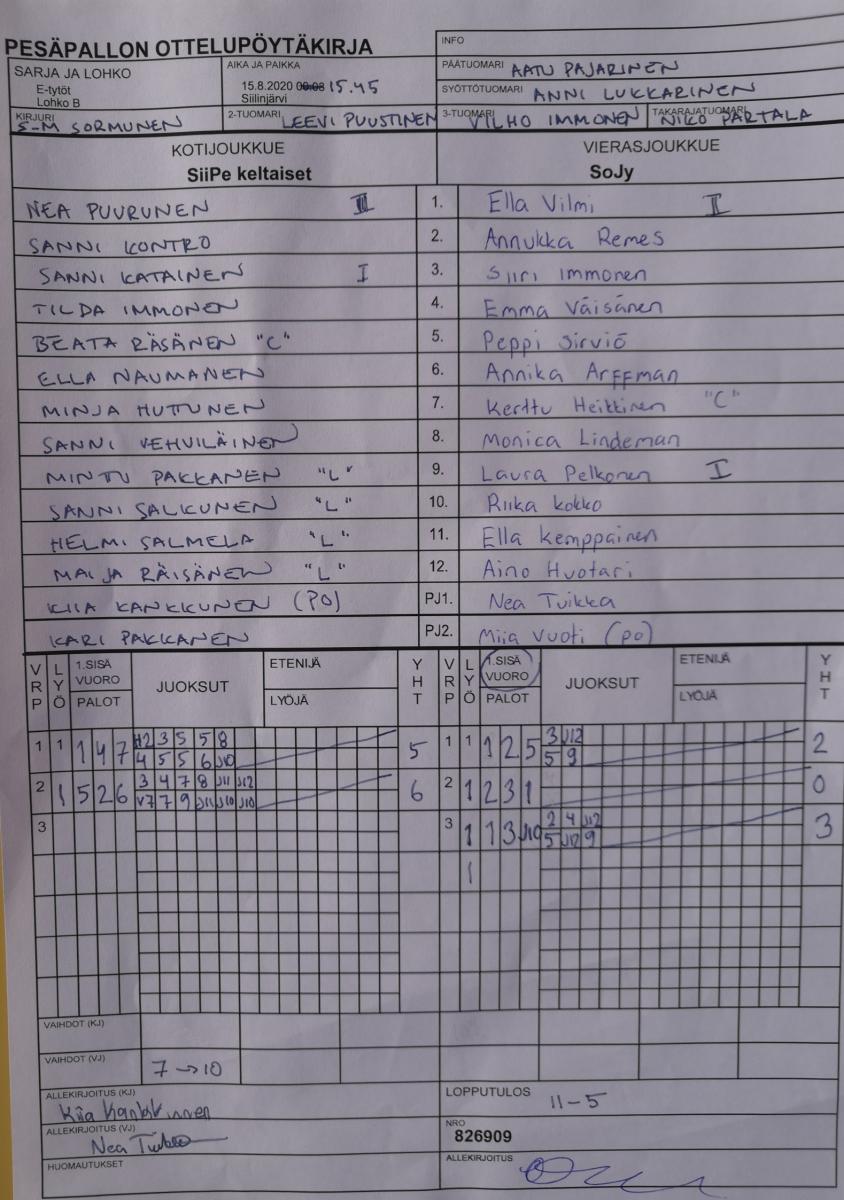 PESÄPALLON OTTELUPÖYTÄKIRJA
INFO
SARJA JA LOHKO
E-tytöt
Lohko B
AIKA JA PAIKKA
15.8.2020 15.45
Siilinjärvi
PÄÄTUOMARI AATU PAJARINEN
SYÖTTÖTUOMARI ANNI LUKKARINEN
KIRJURI S-M SORMUNEN
2-TUOMARI LEEVI PUUSTINEN
3-TUOMARI VILHO IMMONEN
TAKARAJATUOMARI NIKO PARTALA
KOTIJOUKKUE VIERASJOUKKUE
SiiPe keltaiset SoJy
NEA PUURUNEN 1. Ella Vilmi II
SANNI KONTRO 2. Annukka Remes
SANNI KATAINEN I 3. Siiri Immonen
TILDA IMMONEN 4. Emma Väisänen
BEATA RÄSÄNEN "C" 5. Peppi Sirviö
ELLA NAUMANEN 6. Annika Arffman
MINJA HUTTUNEN 7. Kerttu Heikkinen "C"
SANNI VEHVILÄINEN 8. Monica Lindeman
MINTU PAKKANEN "L" 9. Laura Pelkonen I
SANNI SALKUNEN "L" 10. Riika Kokko
HELMI SALMELA "L" 11. Ella Kemppainen
MAIJA RÄISÄNEN "L" 12. Aino Huotari
KIIA KANKKUNEN (PO) PJ1. Nea Tuikka
KARI PAKKANEN PJ2. Miia Vuoti (po)
VRP LYÖ 1.SISÄ VUORO PALOT JUOKSUT ETENIJÄ LYÖJÄ YHT VRP LYÖ 1.SISÄ VUORO PALOT JUOKSUT ETENIJÄ LYÖJÄ YHT
1 1 1 4 7 2 3 5 5 8 5 1 1 1 2 5 3 J12 2
4 5 5 6 J10 5 9
2 1 5 2 6 3 4 7 8 J11 J12 6 2 1 2 3 1 0
V7 7 9 J11 J10 J10
3 3 1 1 3 J10 2 4 J12 3
5 J12 9
1
VAIHDOT (KJ)
VAIHDOT (VJ) 7 → 10
ALLEKIRJOITUS (KJ) Kiia Kankkunen
LOPPUTULOS 11-5
ALLEKIRJOITUS (VJ) Nea Tuikka
NRO
826909
HUOMAUTUKSET
ALLEKIRJOITUS